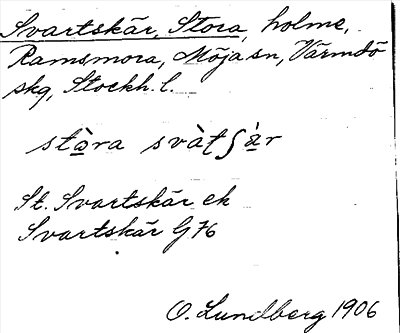 Svartskär, Stora, holme,
Ramsmora, Möja sn, Värmdö
skg, Stockh. l.
stòra svàʈʃä̀r
St. Svartskär ek
Svartskär G 76
O. Lundberg 1906